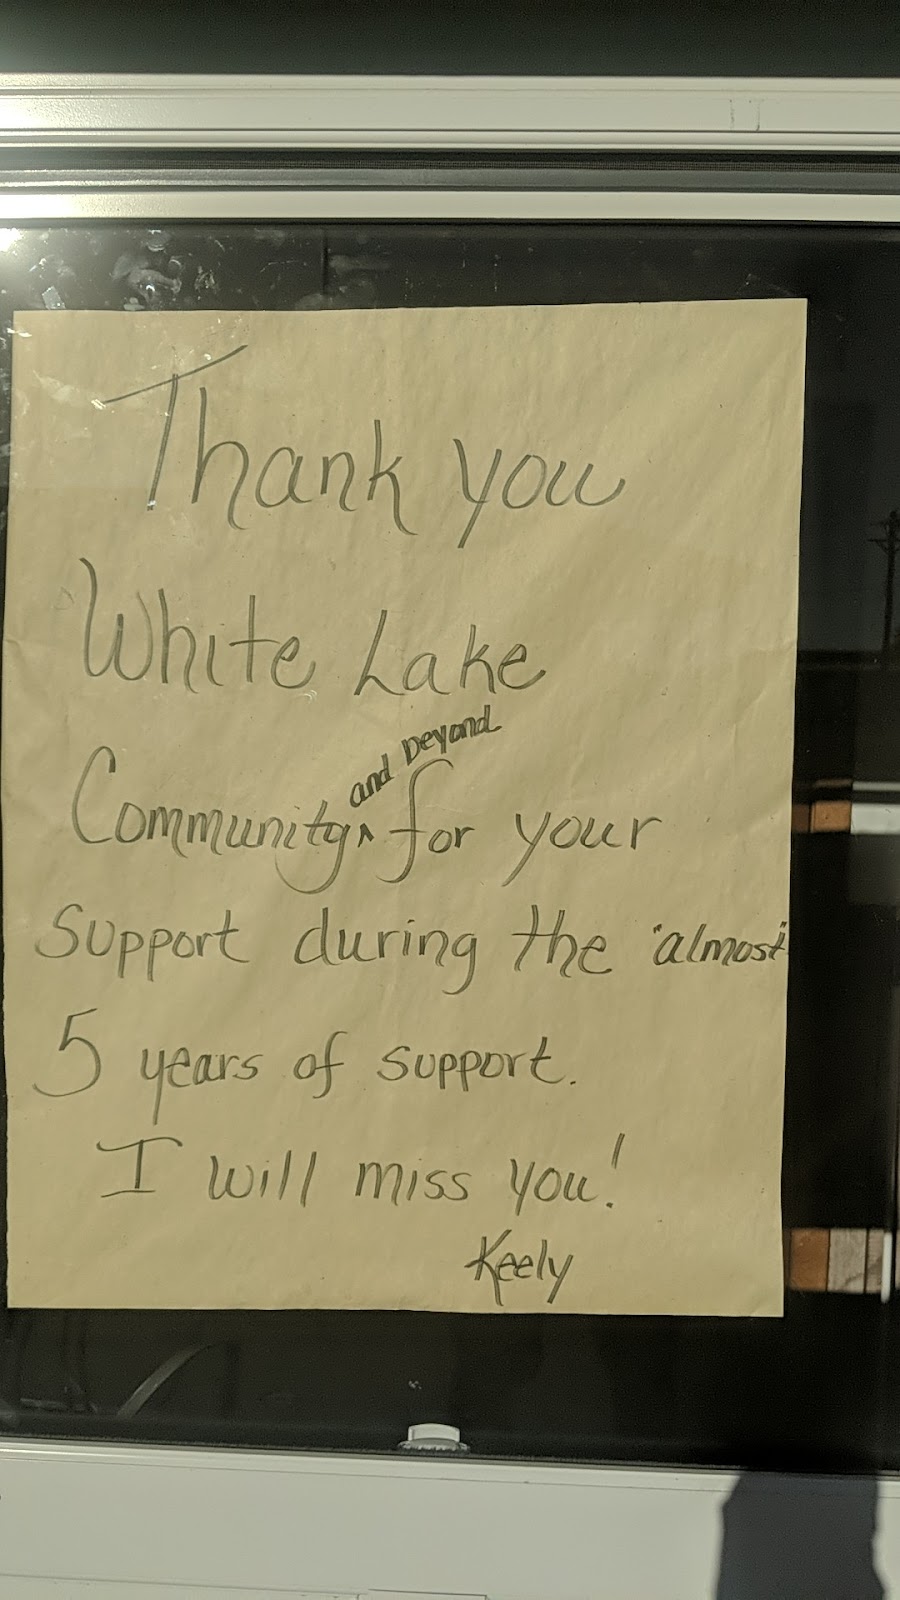 Thank you
White Lake
Community ^ and beyond for your
support during the "almost"
5 years of support.
I will miss you!
Keely